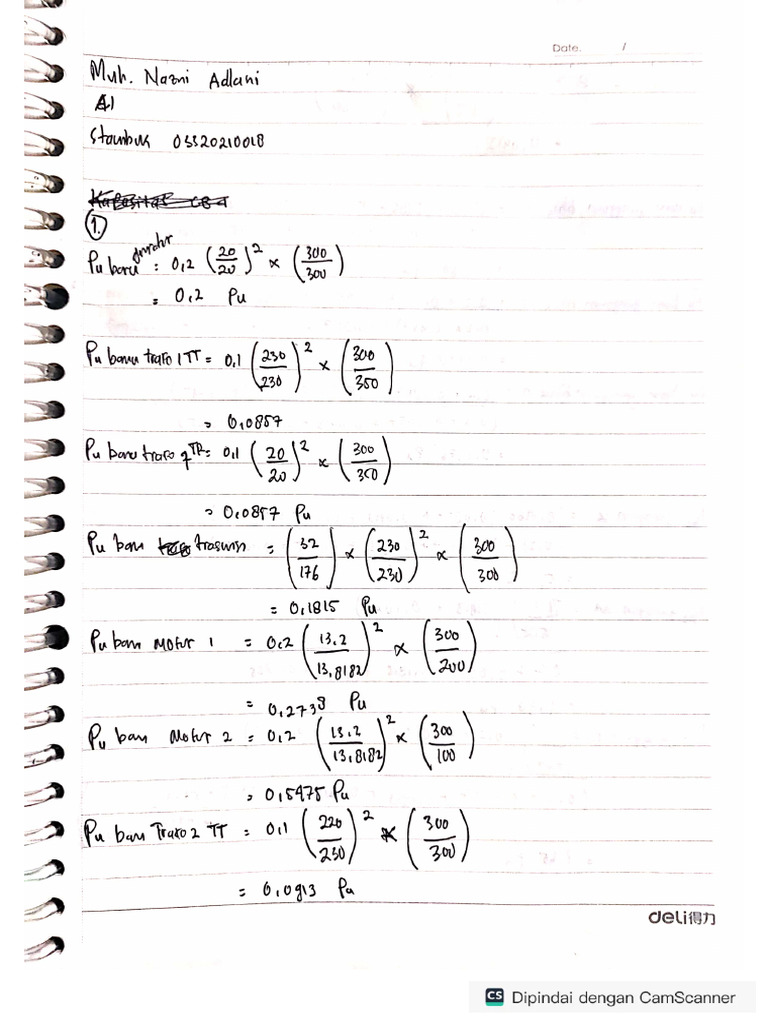 Date. /
Muh. Nazni Adlani
A1
Stambuk 03320210018
Kapasitas CB 4
1.
Pu baru : 0,2 (20/20)² × (300/300)
= 0,2 Pu
Pu baru trafo 1 TT = 0,1 (230/230)² × (300/350)
= 0,0857
Pu baru trafo TR = 0,1 (20/20)² × (300/350)
= 0,0857 Pu
Pu baru trasmisi = (32/176) × (230/230)² × (300/300)
= 0,1815 Pu
Pu baru Motor 1 = 0,2 (13,2/13,8182)² × (300/200)
= 0,2738 Pu
Pu baru Motor 2 = 0,2 (13,2/13,8182)² × (300/100)
= 0,5475 Pu
Pu baru Trafo 2 TT = 0,1 (220/230)² × (300/300)
= 0,0913 Pu
deli得力
CS Dipindai dengan CamScanner